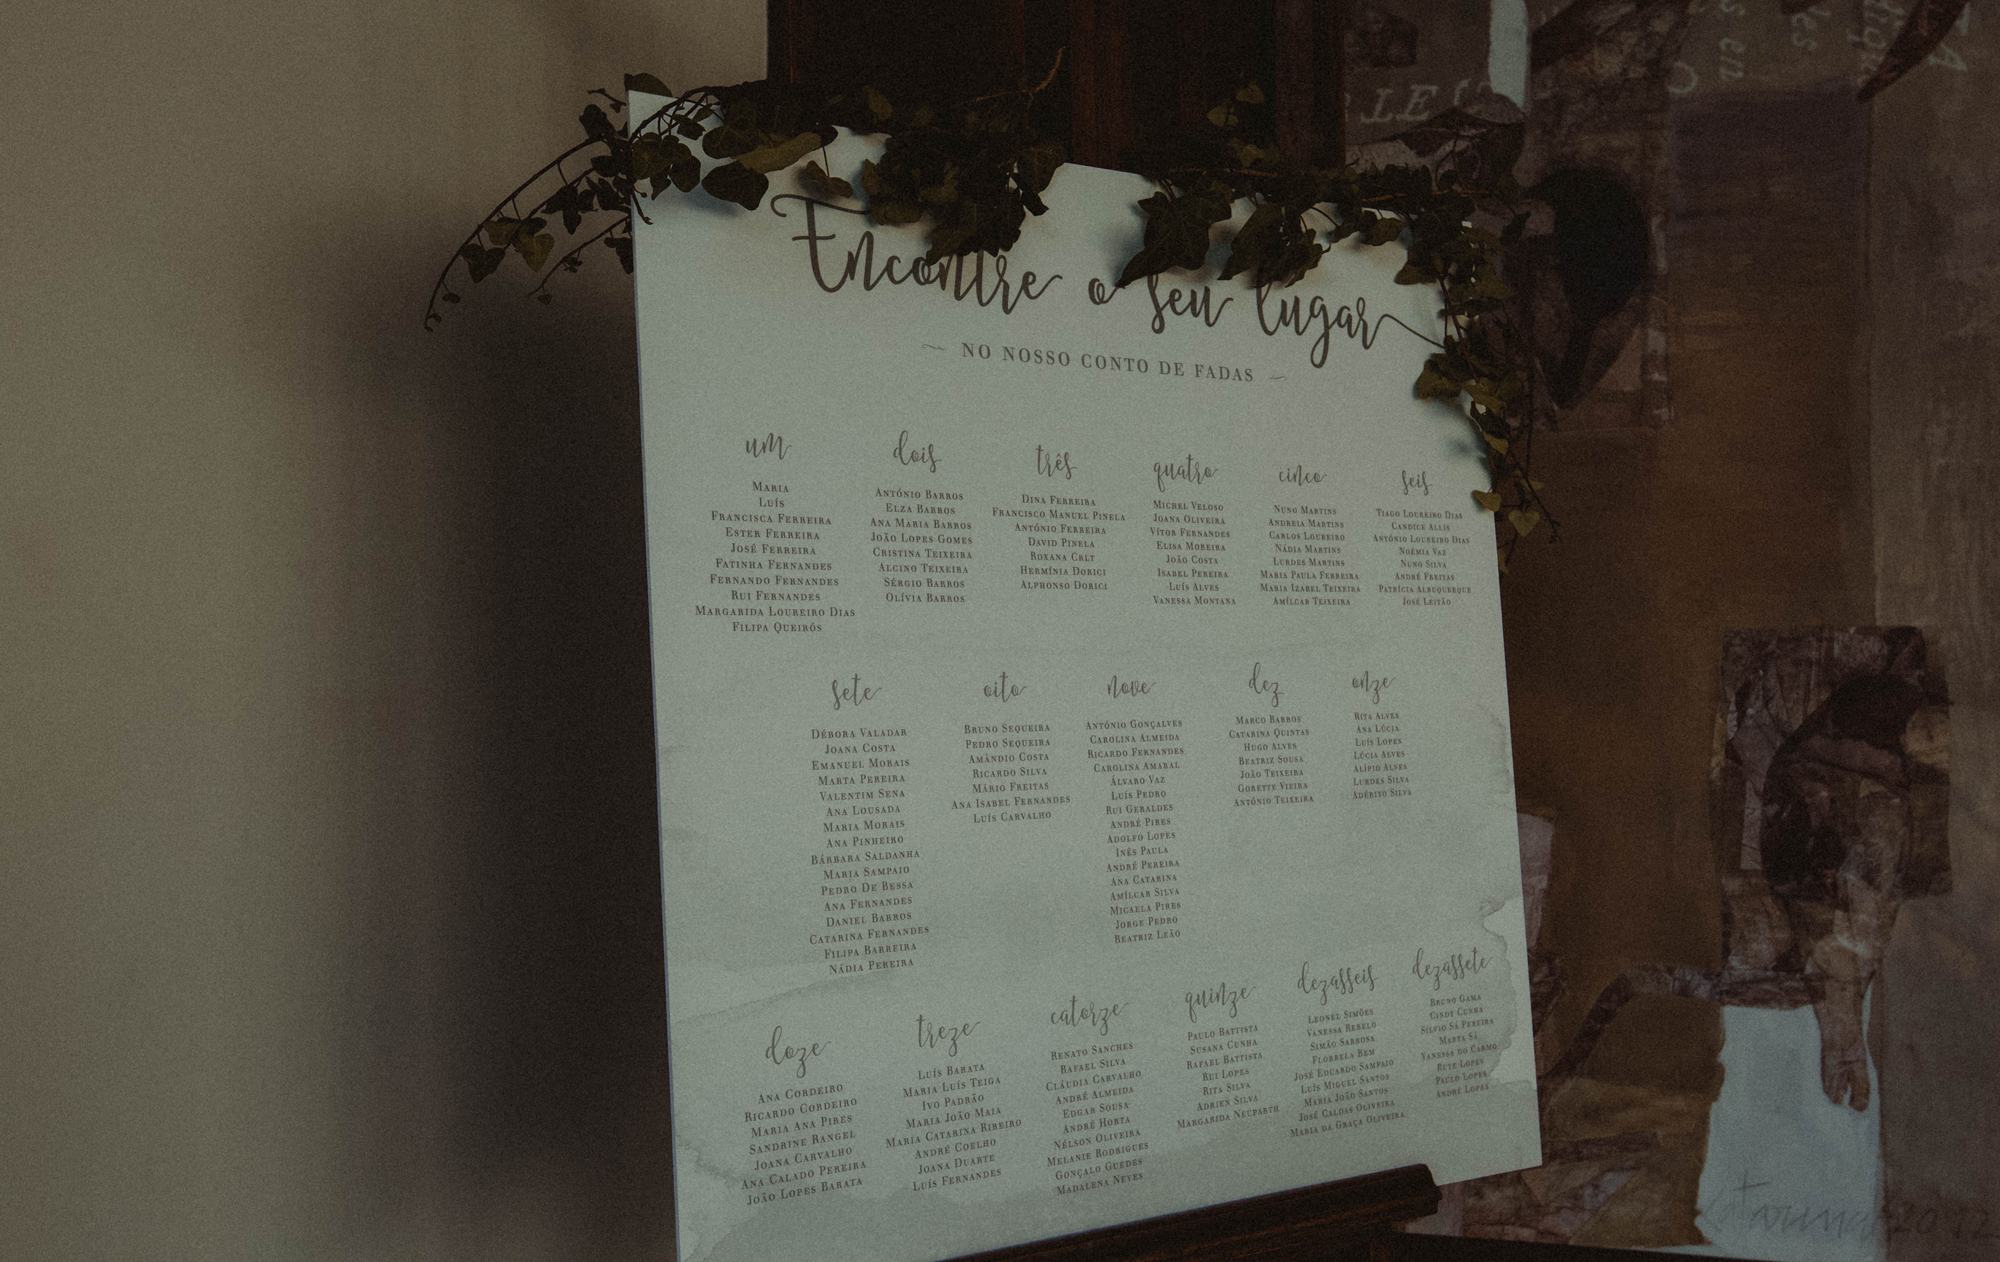 Encontre o seu lugar
NO NOSSO CONTO DE FADAS
um
MARIA
LUÍS
FRANCISCA FERREIRA
ESTER FERREIRA
JOSÉ FERREIRA
FATINHA FERNANDES
FERNANDO FERNANDES
RUI FERNANDES
MARGARIDA LOUREIRO DIAS
FILIPA QUEIRÓS
dois
ANTÓNIO BARROS
ELZA BARROS
ANA MARIA BARROS
JOÃO LOPES GOMES
CRISTINA TEIXEIRA
ALCINO TEIXEIRA
SÉRGIO BARROS
OLÍVIA BARROS
três
DINA FERREIRA
FRANCISCO MANUEL PINELA
ANTÓNIO FERREIRA
DAVID PINELA
ROXANA CRLT
HERMÍNIA DORICI
ALPHONSO DORICI
quatro
MICHEL VELOSO
JOANA OLIVEIRA
VÍTOR FERNANDES
ELISA MOREIRA
JOÃO COSTA
ISABEL PEREIRA
LUÍS ALVES
VANESSA MONTANA
cinco
NUNO MARTINS
ANDREIA MARTINS
CARLOS LOUREIRO
NÁDIA MARTINS
LURDES MARTINS
MARIA PAULA FERREIRA
MARIA IZABEL TEIXEIRA
AMÍLCAR TEIXEIRA
seis
TIAGO LOUREIRO DIAS
CANDICE ALLIS
ANTÓNIO LOUREIRO DIAS
NOÉMIA VAZ
NUNO SILVA
ANDRÉ FREITAS
PATRÍCIA ALBUQUERQUE
JOSÉ LEITÃO
sete
DÉBORA VALADAR
JOANA COSTA
EMANUEL MORAIS
MARTA PEREIRA
VALENTIM SENA
ANA LOUSADA
MARIA MORAIS
ANA PINHEIRO
BÁRBARA SALDANHA
MARIA SAMPAIO
PEDRO DE BESSA
ANA FERNANDES
DANIEL BARROS
CATARINA FERNANDES
FILIPA BARREIRA
NÁDIA PEREIRA
oito
BRUNO SEQUEIRA
PEDRO SEQUEIRA
AMÂNDIO COSTA
RICARDO SILVA
MÁRIO FREITAS
ANA ISABEL FERNANDES
LUÍS CARVALHO
nove
ANTÓNIO GONÇALVES
CAROLINA ALMEIDA
RICARDO FERNANDES
CAROLINA AMARAL
ÁLVARO VAZ
LUÍS PEDRO
RUI GERALDES
ANDRÉ PIRES
ADOLFO LOPES
INÊS PAULA
ANDRÉ PEREIRA
ANA CATARINA
AMÍLCAR SILVA
MICAELA PIRES
JORGE PEDRO
BEATRIZ LEÃO
dez
MARCO BARROS
CATARINA QUINTAS
HUGO ALVES
BEATRIZ SOUSA
JOÃO TEIXEIRA
GORETTE VIEIRA
ANTÓNIO TEIXEIRA
onze
RITA ALVES
ANA LÚCIA
LUÍS LOPES
LÚCIA ALVES
ALÍPIO ALVES
LURDES SILVA
ADÉRITO SILVA
doze
ANA CORDEIRO
RICARDO CORDEIRO
MARIA ANA PIRES
SANDRINE RANGEL
JOANA CARVALHO
ANA CALADO PEREIRA
JOÃO LOPES BARATA
treze
LUÍS BARATA
MARIA LUÍS TEIGA
IVO PADRÃO
MARIA JOÃO MAIA
MARIA CATARINA RIBEIRO
ANDRÉ COELHO
JOANA DUARTE
LUÍS FERNANDES
catorze
RENATO SANCHES
RAFAEL SILVA
CLÁUDIA CARVALHO
ANDRÉ ALMEIDA
EDGAR SOUSA
ANDRÉ HORTA
NÉLSON OLIVEIRA
MELANIE RODRIGUES
GONÇALO GUEDES
MADALENA NEVES
quinze
PAULO BATTISTA
SUSANA CUNHA
RAFAEL BATTISTA
RUI LOPES
RITA SILVA
ADRIEN SILVA
MARGARIDA NEUPARTH
dezasseis
LEONEL SIMÕES
VANESSA REBELO
SIMÃO SABROSA
FLORBELA BEM
JOSÉ EDUARDO SAMPAIO
LUÍS MIGUEL SANTOS
MARIA JOÃO SANTOS
JOSÉ CALDAS OLIVEIRA
MARIA DA GRAÇA OLIVEIRA
dezassete
BRUNO GAMA
CINDY CUNHA
SÍLVIO SÁ PEREIRA
MARTA SÁ
VANESSA DO CARMO
RUTE LOPES
PAULO LOPES
ANDRÉ LOPES